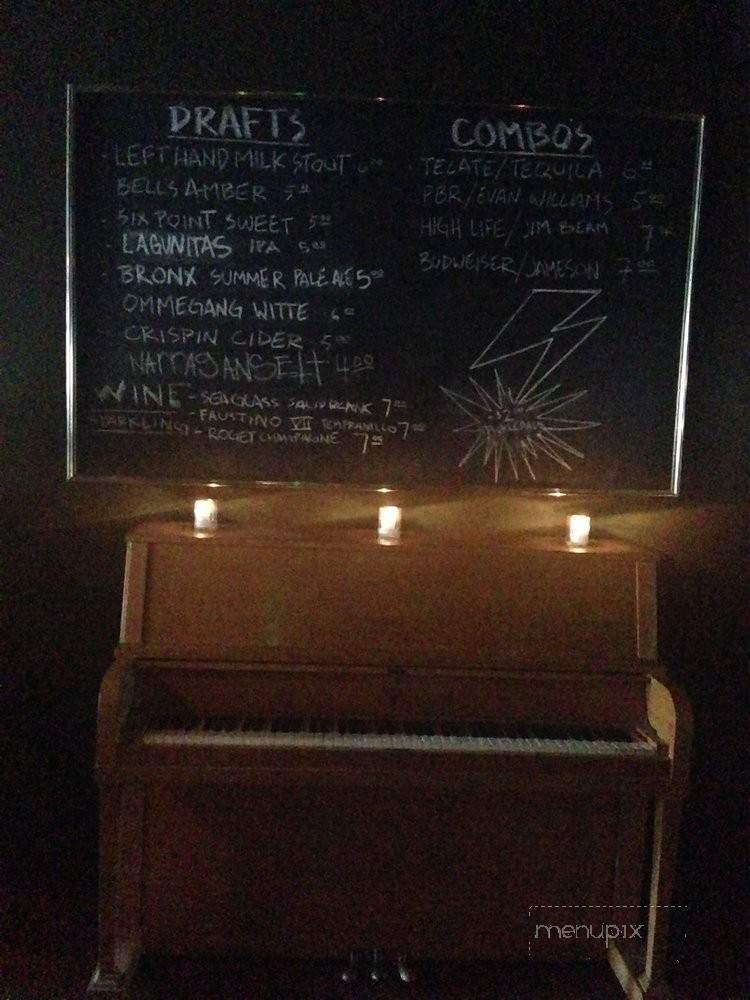 DRAFTS
- LEFT HAND MILK STOUT 6⁰⁰
BELLS AMBER 5⁰⁰
- SIX POINT SWEET 5⁰⁰
- LAGUNITAS IPA 5⁰⁰
- BRONX SUMMER PALE ALE 5⁰⁰
OMMEGANG WITTE 6⁰⁰
- CRISPIN CIDER 5⁰⁰
NARRAGANSETT 4.00
WINE - SEAGLASS SAUV BLANK 7⁰⁰
- FAUSTINO VII TEMPRANILLO 7⁰⁰
SPARKLING - ROGET CHAMPAGNE 7⁰⁰
COMBO'S
- TECATE/TEQUILA 6⁰⁰
PBR/EVAN WILLIAMS 5⁰⁰
HIGH LIFE/JIM BEAM 7⁰⁰
BUDWEISER/JAMESON 7⁰⁰
$2
menupix